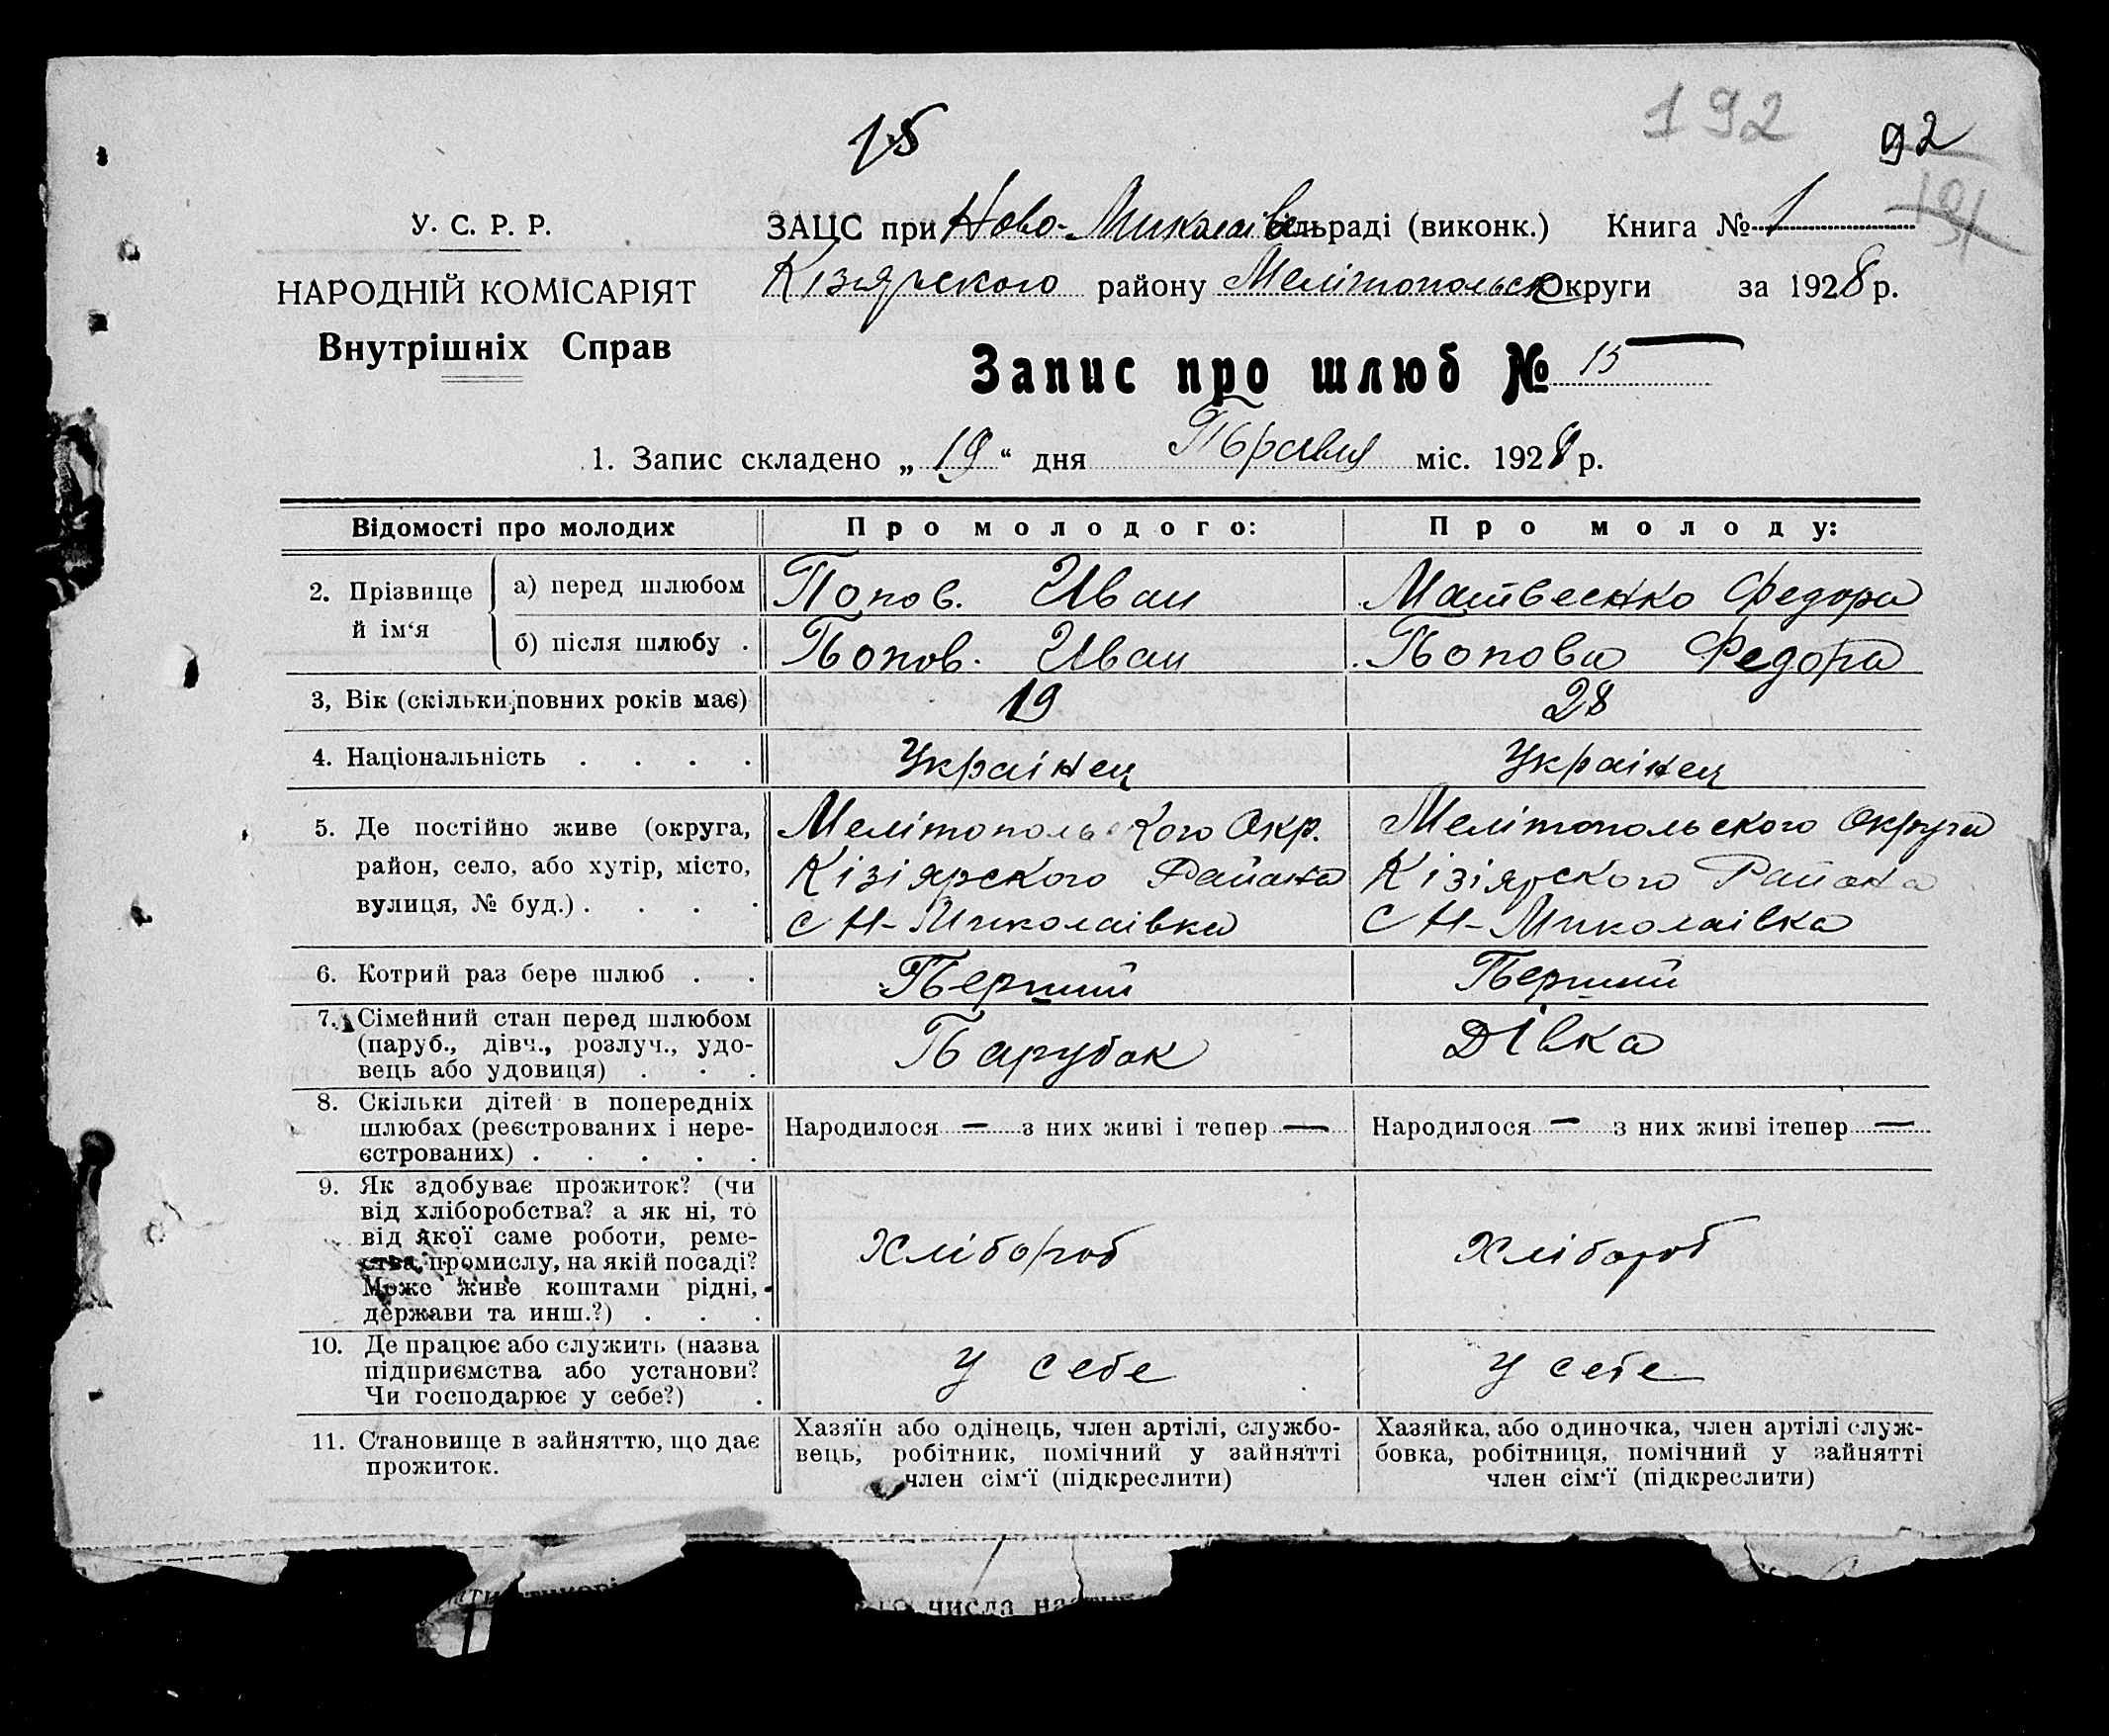 192
15
92
У. С. Р. Р.
ЗАЦС при Ново-Миколаївс сільраді (виконк.) Книга № 1
НАРОДНІЙ КОМІСАРІЯТ
Кізіярского району Мелітопольск Округи за 1928 р.
Внутрішніх Справ
Запис про шлюб № 15
1. Запис складено „ 19 “ дня Травня міс. 1928 р.
Відомості про молодих
Про молодого:
Про молоду:
2. Прізвище й ім‘я
а) перед шлюбом
Попов. Иван
Матвеенко Федора
б) після шлюбу .
Попов. Иван
Попова Федора
3, Вік (скільки повних років має)
19
28
4. Національність . . . .
Українец
Українец
5. Де постійно живе (округа,
район, село, або хутір, місто,
вулиця, № буд.) . . . .
Мелітопольского Окр.
Кізіярского Района
с Н-Миколаівка
Мелітопольского Округа
Кізіярского Района
с Н-Миколаівка
6. Котрий раз бере шлюб . .
Перший
Перший
7. Сімейний стан перед шлюбом
(паруб., дівч., розлуч., удо-
вець або удовиця) . . .
Парубок
Дівка
8. Скільки дітей в попередніх
шлюбах (реєстрованих і нере-
єстрованих) . . . . .
Народилося — з них живі і тепер —
Народилося — з них живі ітепер —
9. Як здобуває прожиток? (чи
від хліборобства? а як ні, то
від якої саме роботи, реме-
ства, промислу, на якій посаді?
Може живе коштами рідні,
держави та инш.?) . . .
Хлібороб
Хлібороб
10. Де працює або служить (назва
підприємства або установи?
Чи господарює у себе?) .
У себе
У себе
11. Становище в зайняттю, що дає
прожиток.
Хазяїн або одінець, член артілі, службо-
вець, робітник, помічний у зайнятті
член сім‘ї (підкреслити)
Хазяйка, або одиночка, член артілі служ-
бовка, робітниця, помічний у зайнятті
член сім‘ї (підкреслити)
числа